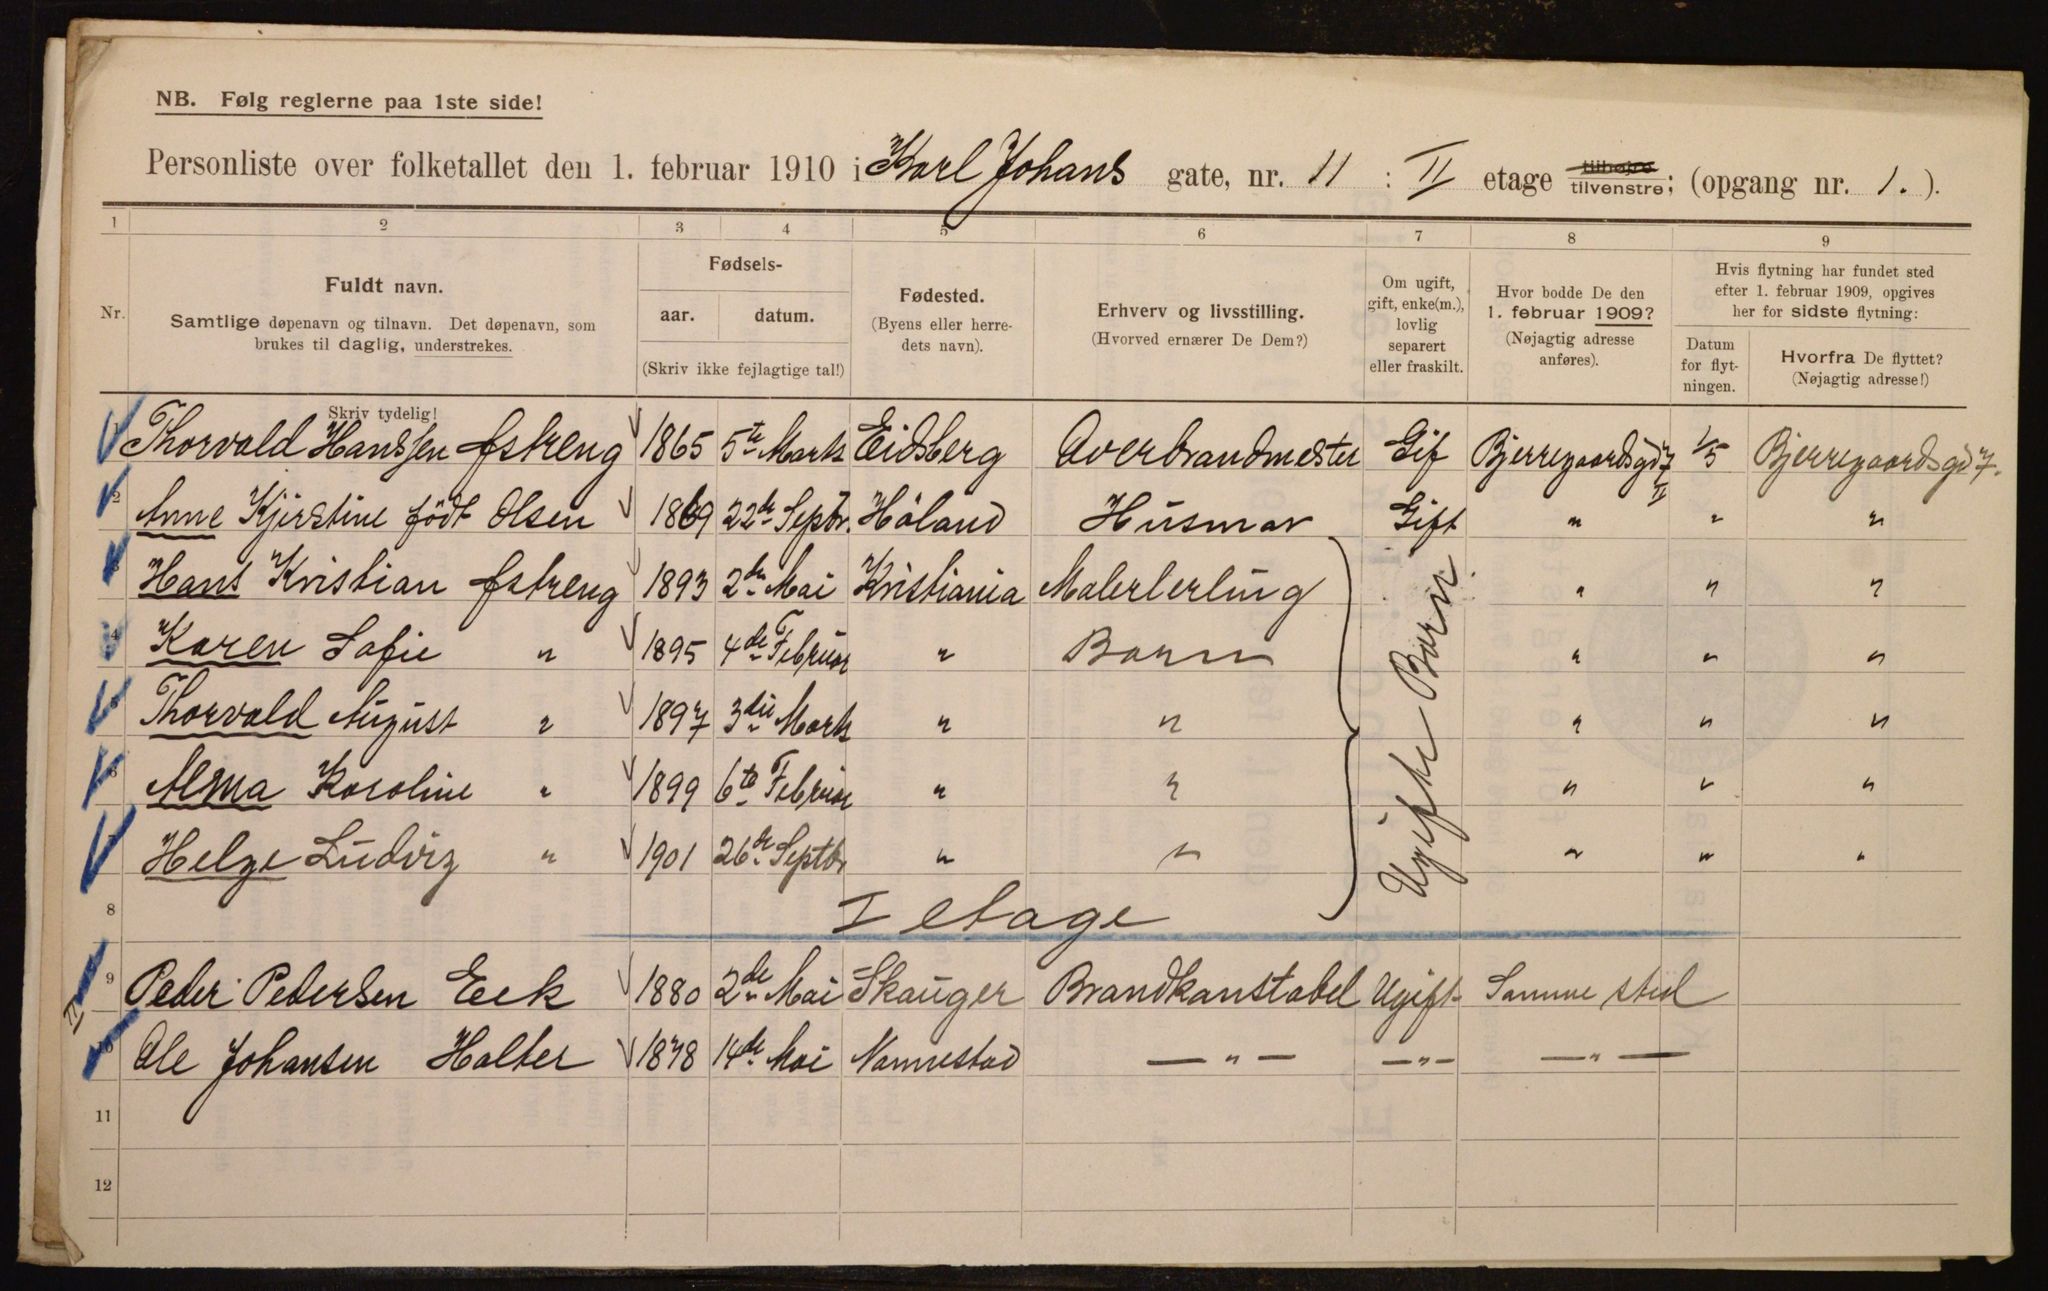 NB. Følg reglerne paa 1ste side!
Personliste over folketallet den 1. februar 1910 i Karl Johans gate, nr. 11 : II etage tilhøjre tilvenstre; (opgang nr. 1. ).
1 2 3 4 5 6 7 8 9
Nr.
Fuldt navn.
Samtlige døpenavn og tilnavn. Det døpenavn, som
brukes til daglig, understrekes.
Skriv tydelig!
Fødsels-
aar. datum.
(Skriv ikke fejlagtige tal!)
Fødested.
(Byens eller herre-
dets navn).
Erhverv og livsstilling.
(Hvorved ernærer De Dem?)
Om ugift,
gift, enke(m.),
lovlig
separert
eller fraskilt.
Hvor bodde De den
1. februar 1909?
(Nøjagtig adresse
anføres).
Hvis flytning har fundet sted
efter 1. februar 1909, opgives
her for sidste flytning:
Datum
for flyt-
ningen.
Hvorfra De flyttet?
(Nøjagtig adresse!)
1 Thorvald Hanssen Østreng 1865 5te Marts Eidsberg Overbrandmester Gif Bjerregaardsgd 7 II 1/5 Bjerregaardsgd 7.
2 Anne Kjirstine födt Olsen 1869 22de Septbr. Höland Husmor Gift " " "
3 Hans Kristian Østreng 1893 2den Mai Kristiania Malerlerling " " "
4 Karen Sofie " 1895 4de Februar " Barn " " "
5 Thorvald August " 1897 3die Marts " " " " "
6 Alma Karoline " 1899 6te Februar " " " " "
7 Helge Ludvig " 1901 26de Septbr " " " " "
Ugifte Barn
8 I etage
9 Peder Pedersen Eek 1880 2de Mai Skauger Brandkonstabel Ugift Samme sted
II
10 Ole Johansen Holter 1878 14de Mai Nannestad — " — — " — — " —
11
12